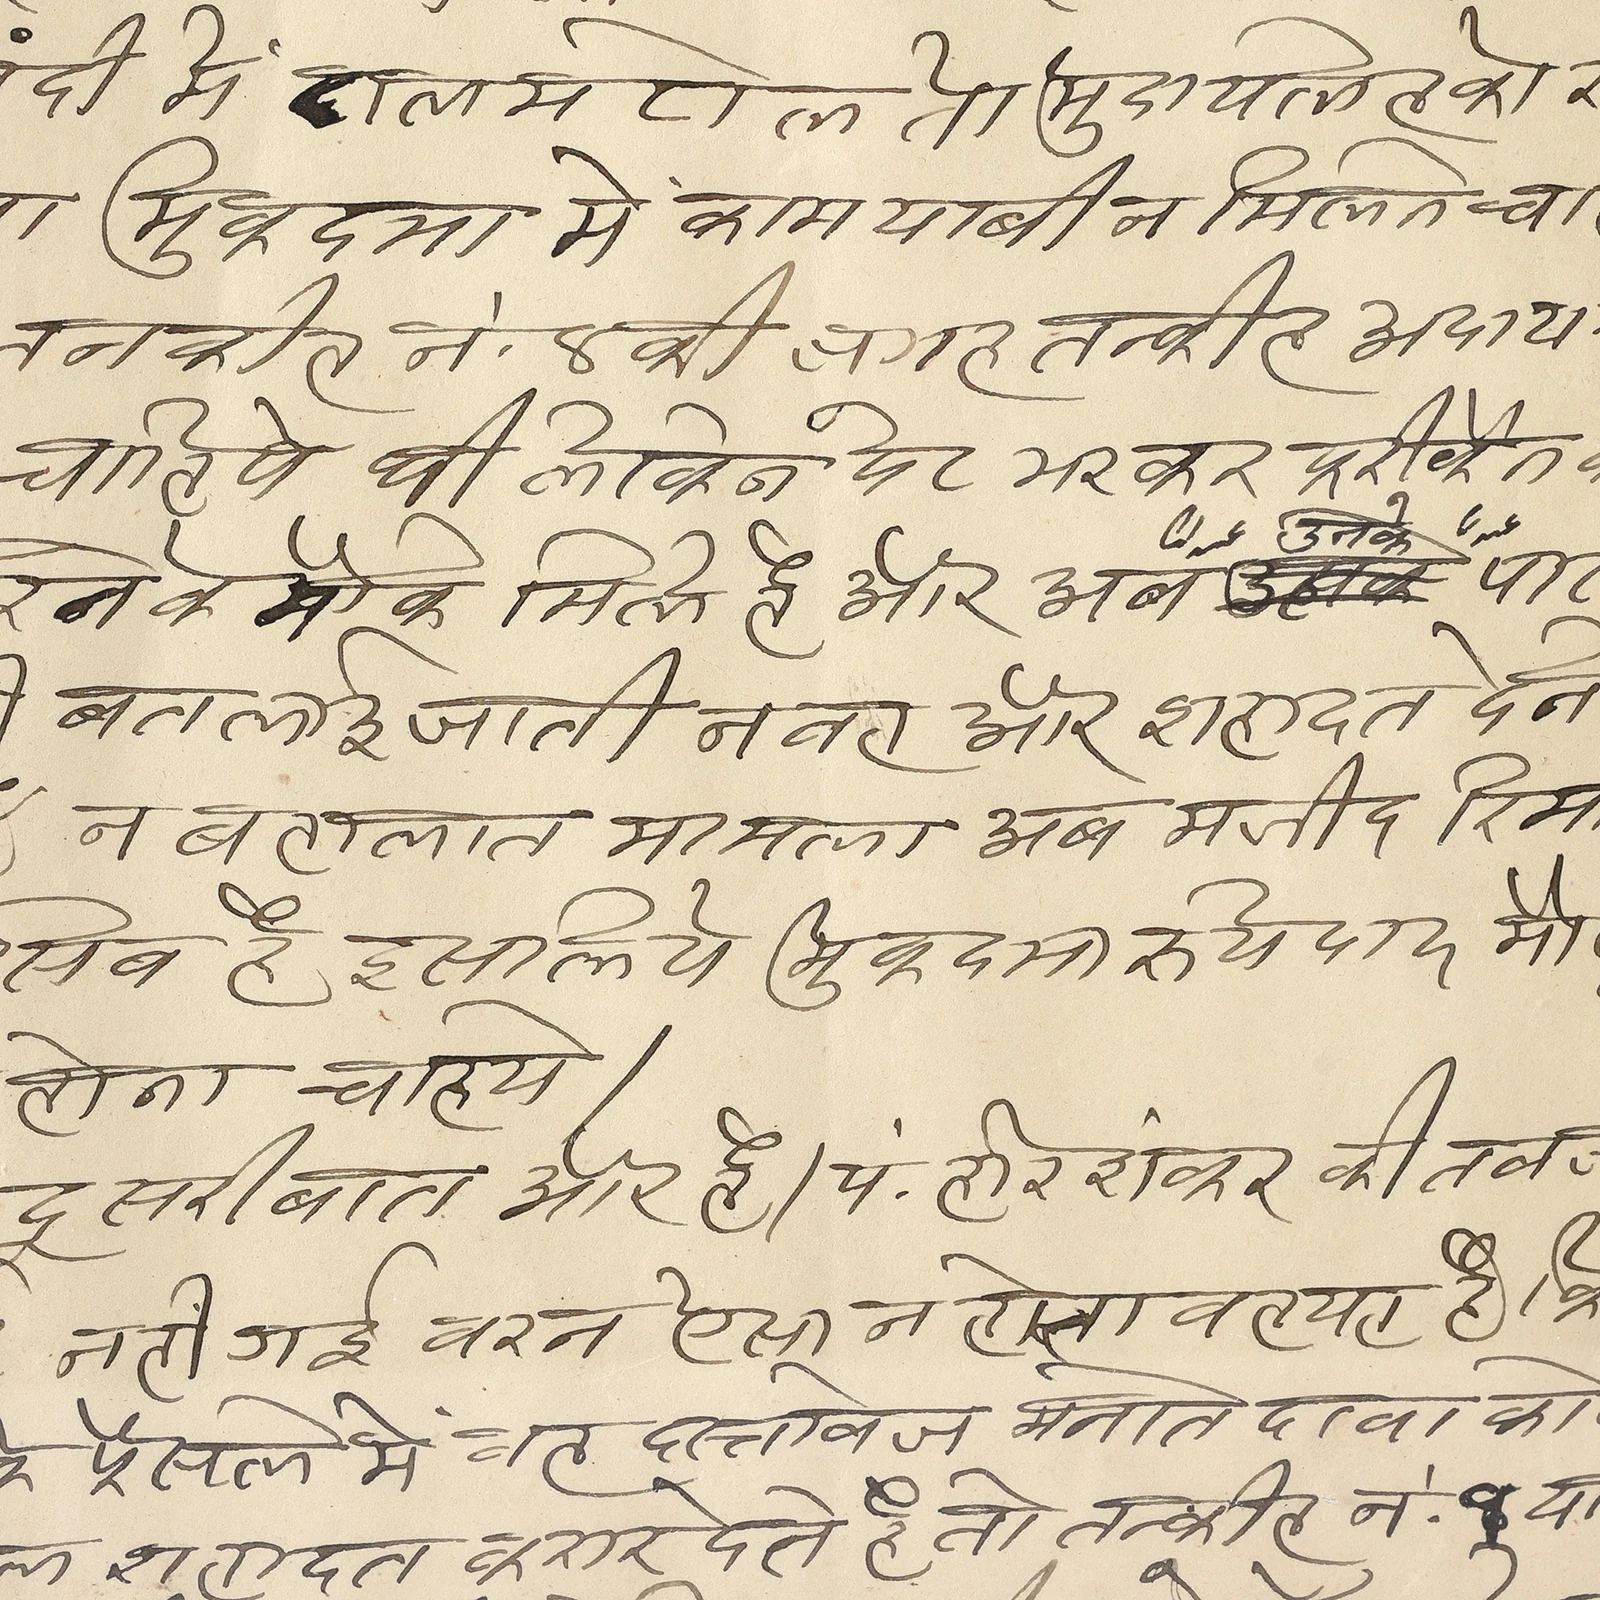 में टालमटोल तो मुदायलेह को
मुकदमा में कामयाबी न मिलते
तनकीह नं. ४ की जगह तन्कीह अदाय
चाहिये थी लेकिन पेट भरकर फरीकैन
करने के मौके मिले है और अब उनके
बतलाई जाती न वह और शहादत देने
न बहालात मामला अब मजीद
है इसलिये मुकदमा रुयेदाद
होना चाहिये।
दूसरी बात और है। पं. हरिशंकर की
नहीं गई वरन ऐसा न होता वह यह है कि
के फैसले में वह दस्तावेज मनाते दावा को
शहादत करार देते है तो तन्कीह नं. या